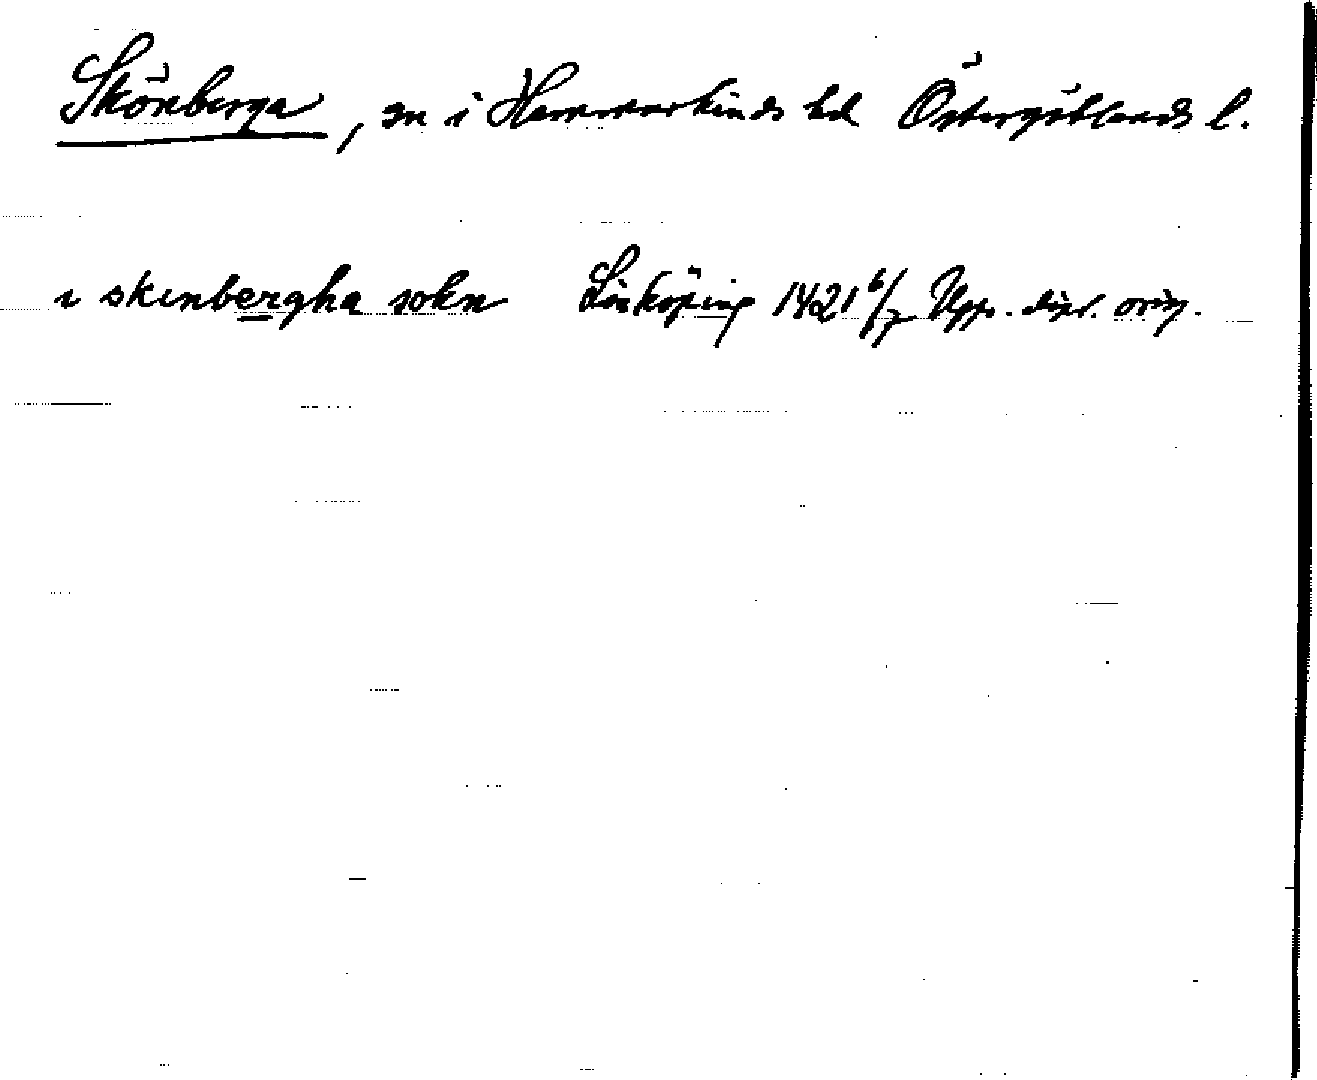 Skönberga, sn i Hammarkinds hd Östergötlands l.
i skinbergha sokn Linköping 1421 6/7 Upps. dipl. orig.